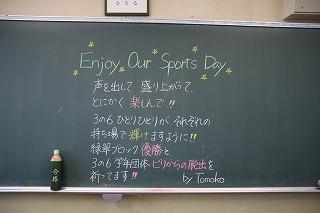 Enjoy Our Sports Day
声を出して、盛り上がって、
とにかく 楽しんで!!
3の6 ひとりひとりが、それぞれの
持ち場で 輝けますように!!
緑翠ブロック 優勝と
3の6 学年団体 ビリからの脱出を
祈ってます!!
by Tomoko
合格